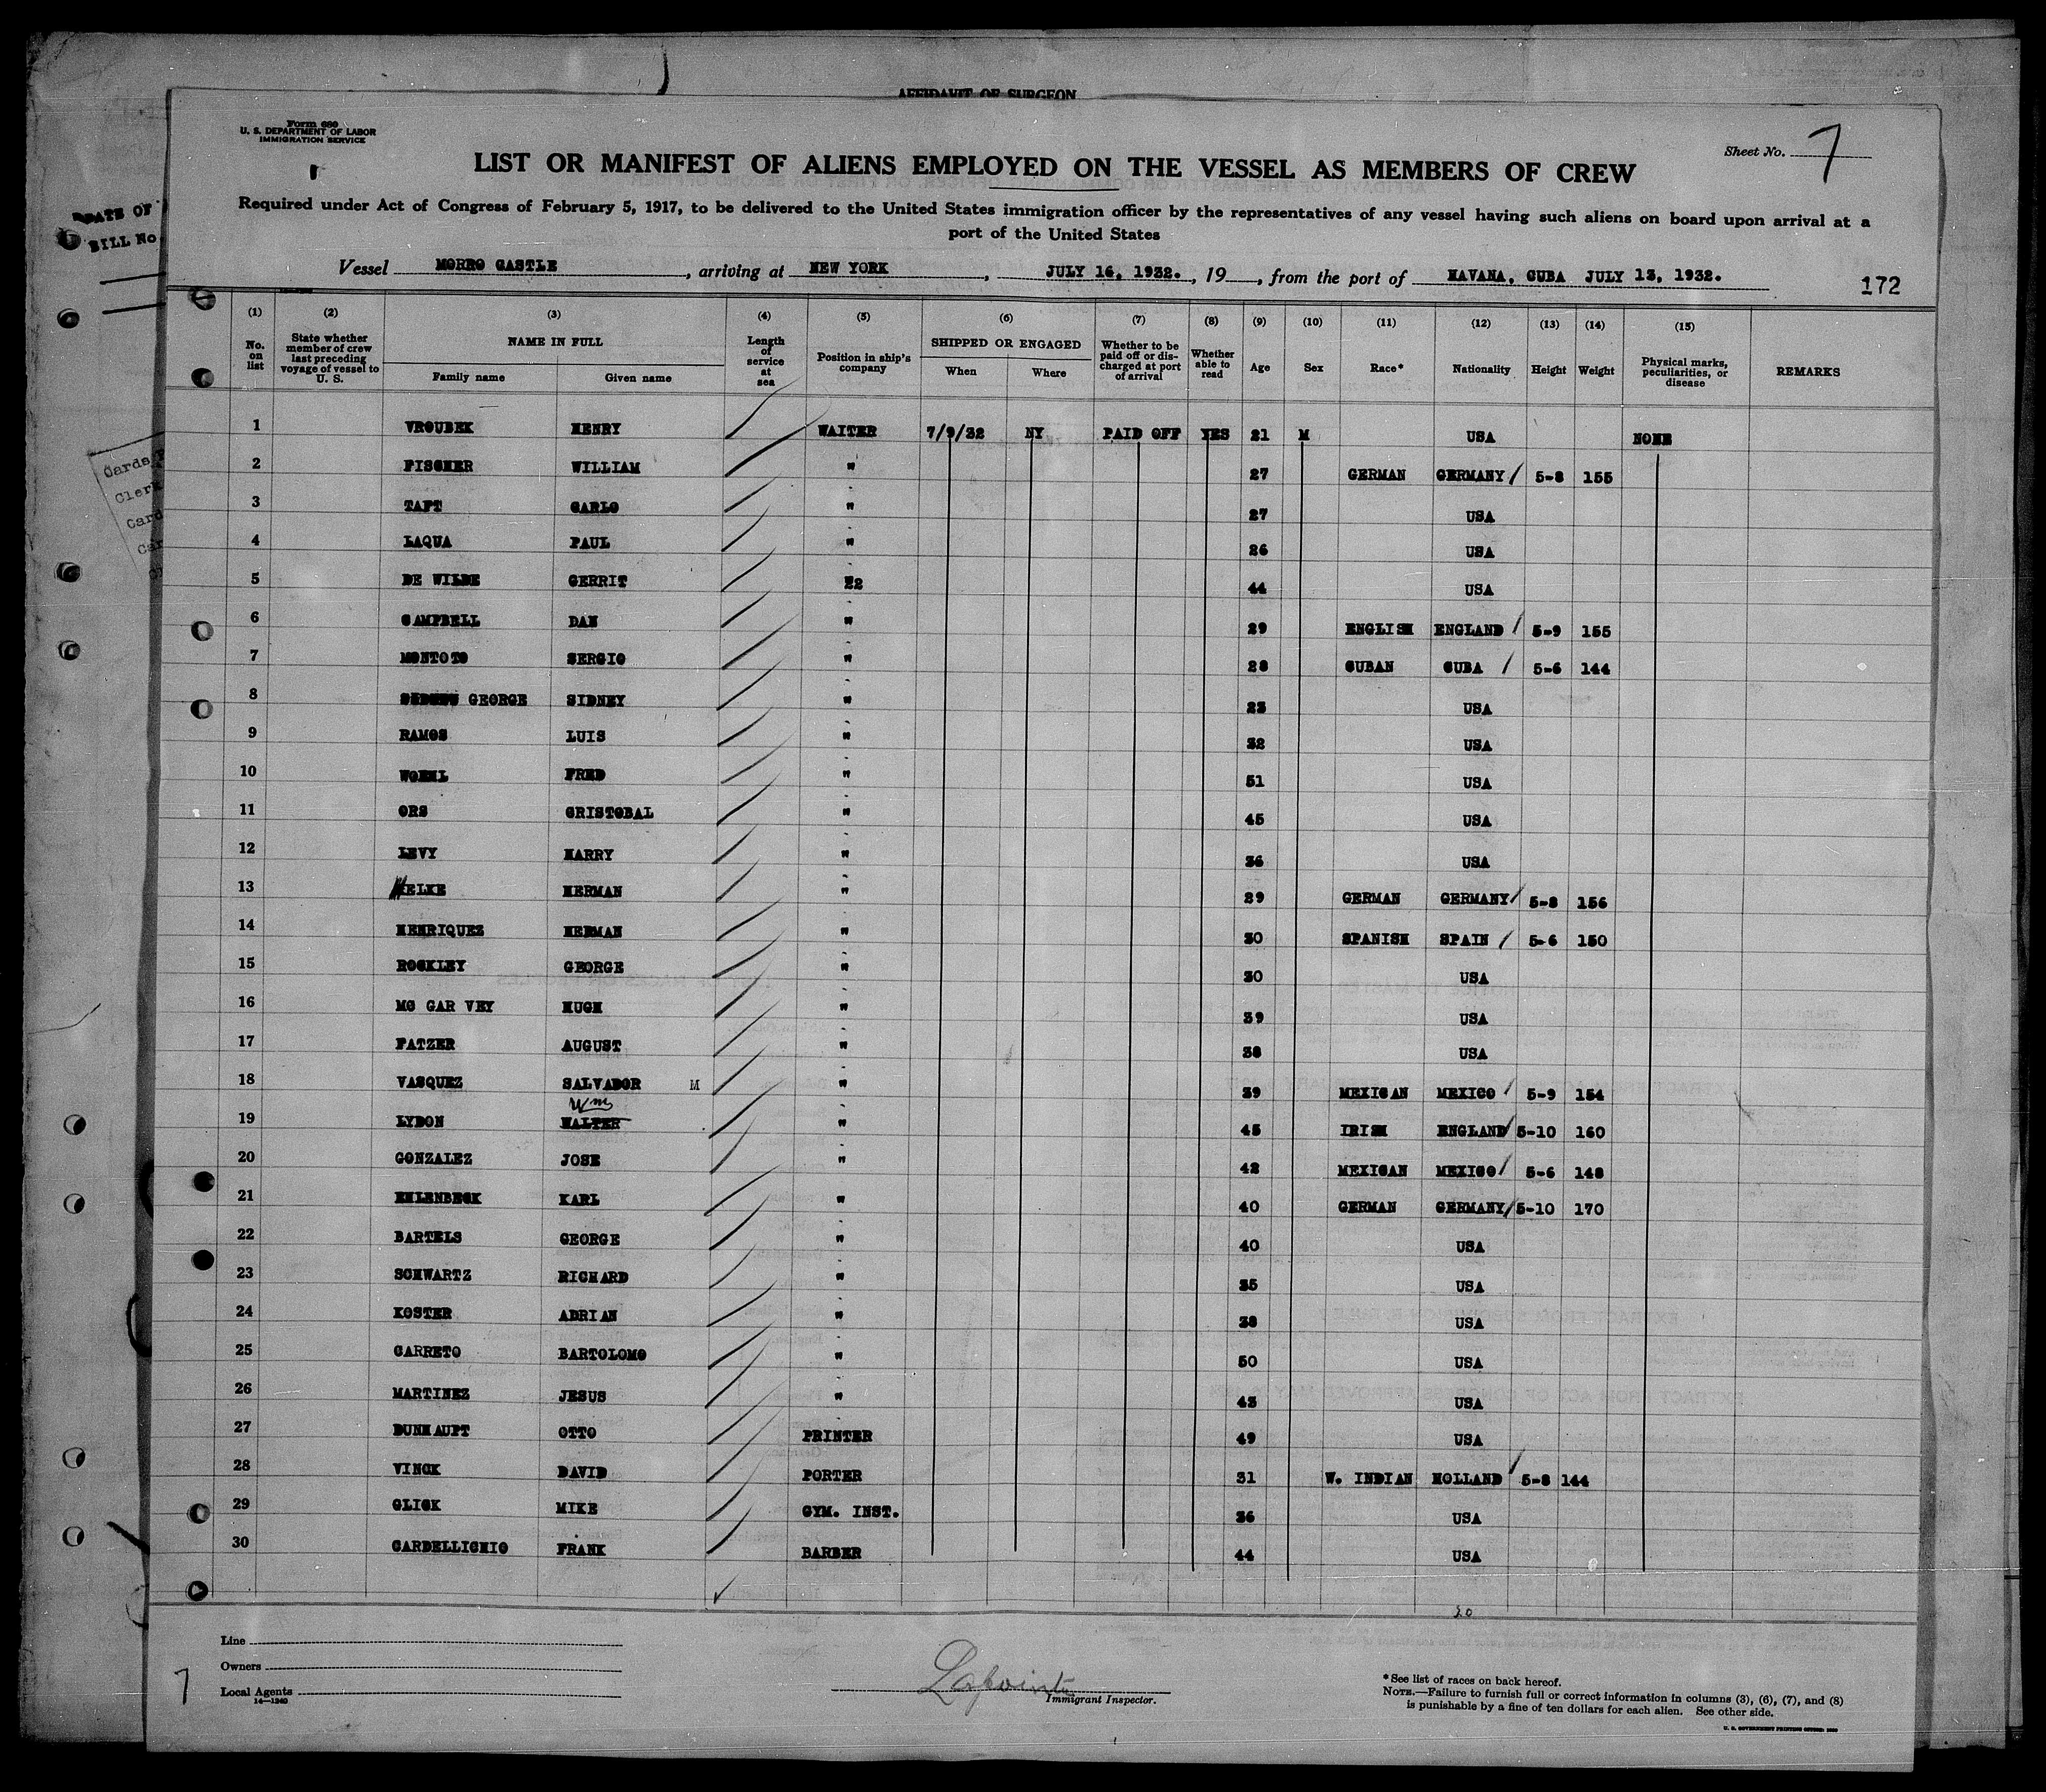 AFFIDAVIT OF SURGEON
Form 680
U. S. DEPARTMENT OF LABOR
IMMIGRATION SERVICE
Sheet No. 7
LIST OR MANIFEST OF ALIENS EMPLOYED ON THE VESSEL AS MEMBERS OF CREW
Required under Act of Congress of February 5, 1917, to be delivered to the United States immigration officer by the representatives of any vessel having such aliens on board upon arrival at a
port of the United States
DATE OF
BILL No
Vessel MORRO CASTLE, arriving at NEW YORK, JULY 16, 1932., 19, from the port of HAVANA, CUBA JULY 13, 1932.
172
(1) No. on list
(2) State whether member of crew last preceding voyage of vessel to U. S.
(3) NAME IN FULL Family name Given name
(4) Length of service at sea
(5) Position in ship's company
(6) SHIPPED OR ENGAGED When Where
(7) Whether to be paid off or discharged at port of arrival
(8) Whether able to read
(9) Age
(10) Sex
(11) Race*
(12) Nationality
(13) Height
(14) Weight
(15) Physical marks, peculiarities, or disease
REMARKS
1 VROUBEK HENRY WAITER 7/9/32 NY PAID OFF YES 21 M USA NONE
2 FISCHER WILLIAM " 27 GERMAN GERMANY 5-8 155
3 TAFT CARLO " 27 USA
4 LAQUA PAUL " 26 USA
5 DE WILDE GERRIT 44 USA
6 CAMPBELL DAN " 29 ENGLISH ENGLAND 5-9 155
7 MONTOTO SERGIO " 28 CUBAN CUBA 5-6 144
8 GEORGE SIDNEY " 23 USA
9 RAMOS LUIS " 32 USA
10 WOEHL FRED " 51 USA
11 ORS CRISTOBAL " 45 USA
12 LEVY HARRY " 36 USA
13 HELKE HERMAN " 29 GERMAN GERMANY 5-8 156
14 HENRIQUEZ HERMAN " 30 SPANISH SPAIN 5-6 150
15 ROCKLEY GEORGE " 30 USA
16 MC GAR VEY HUGH " 39 USA
17 PATZER AUGUST " 38 USA
18 VASQUEZ SALVADOR M " 39 MEXICAN MEXICO 5-9 154
Wm
19 LYDON WALTER " 45 IRISH ENGLAND 5-10 160
20 GONZALEZ JOSE " 42 MEXICAN MEXICO 5-6 148
21 EHLENBECK KARL " 40 GERMAN GERMANY 5-10 170
22 BARTELS GEORGE " 40 USA
23 SCHWARTZ RICHARD " 35 USA
24 KOSTER ADRIAN " 38 USA
25 CARRETO BARTOLOMO " 50 USA
26 MARTINEZ JESUS " 43 USA
27 DUNHAUPT OTTO PRINTER 49 USA
28 VINCK DAVID PORTER 31 W. INDIAN HOLLAND 5-8 144
29 GLICK MIKE GYM. INST. 36 USA
30 CARDELLICHIO FRANK BARBER 44 USA
Cards
Clerk
Card
Line
Owners
Local Agents
14—1240
7
Lapointe
Immigrant Inspector.
*See list of races on back hereof.
NOTE.—Failure to furnish full or correct information in columns (3), (6), (7), and (8)
is punishable by a fine of ten dollars for each alien. See other side.